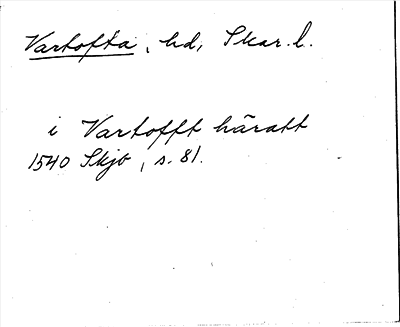 Vartofta, hd, Skar. l.
i Vartofft häratt
1540 Skjb, s. 81.